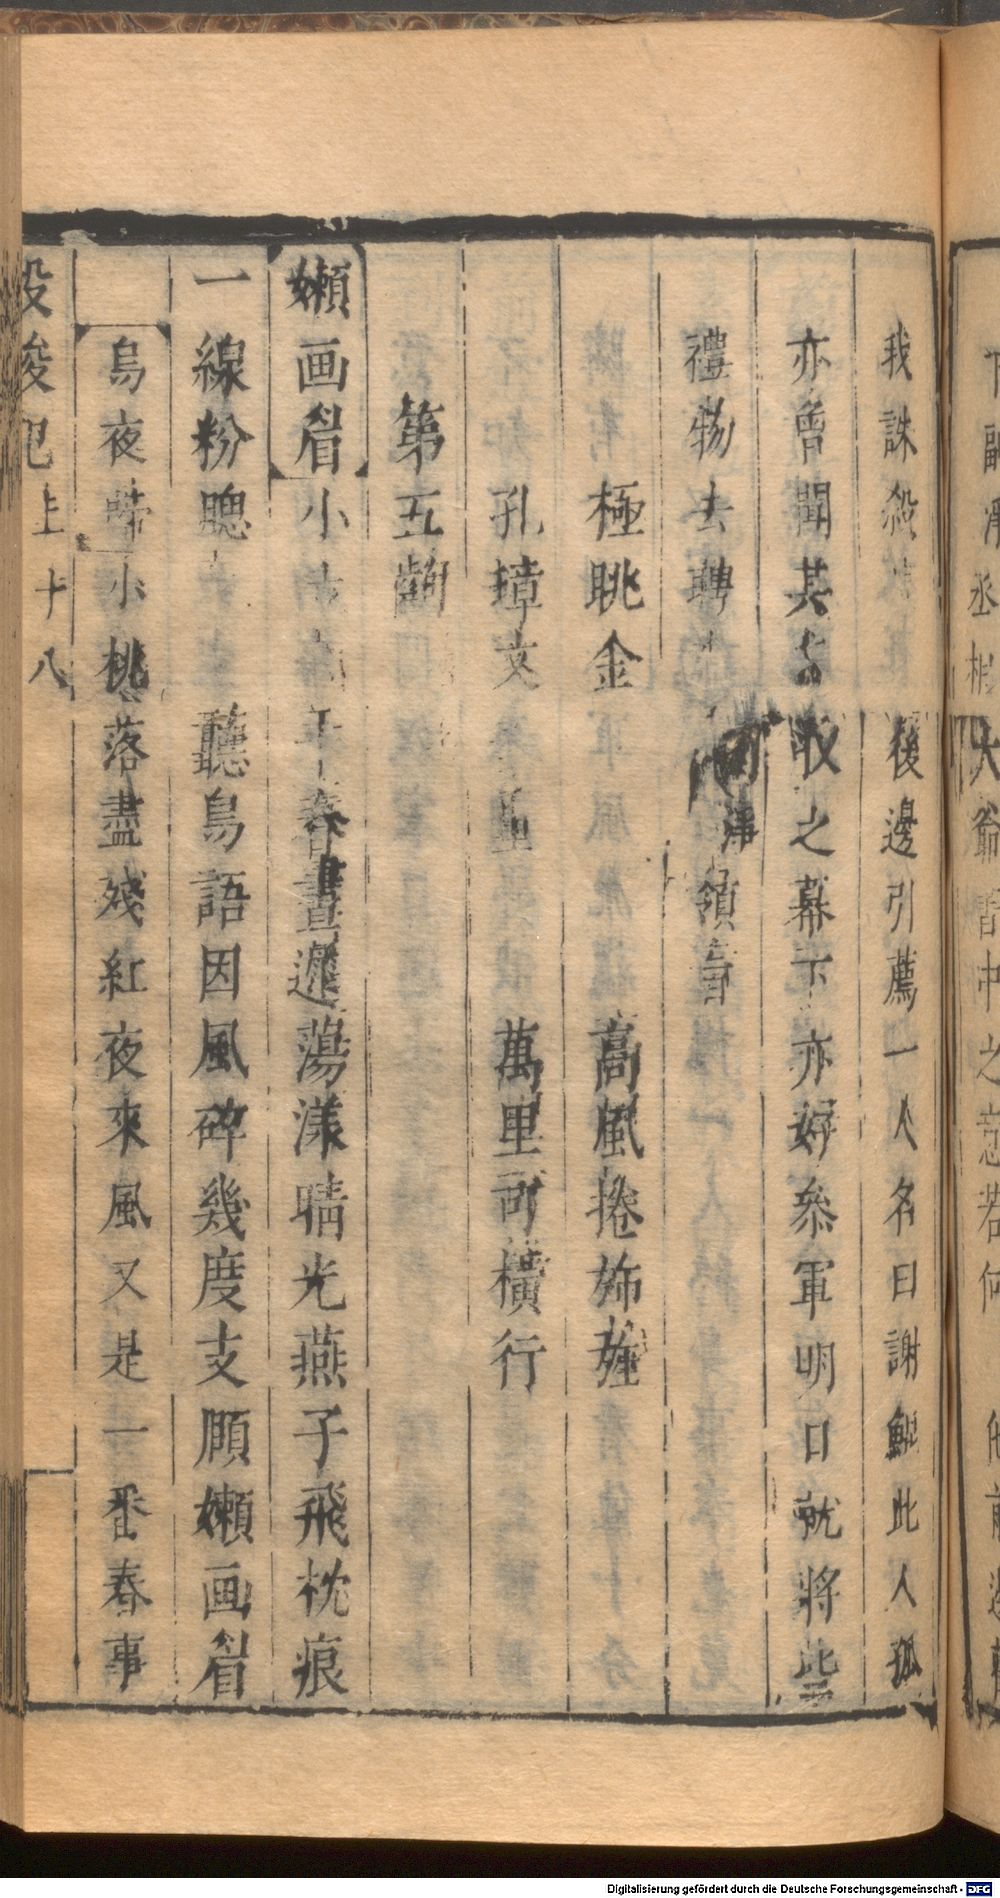 我誅殺後邊引薦一人名曰謝鯤此人孤
亦曾聞其名收之幕下亦好參軍明日就將些
禮物去聘 淨領旨
極眺金 高風捲斾旌
孔璋文 萬里可橫行
第五齣
嬾画眉小 春晝遲蕩漾晴光燕子飛枕痕
一線粉 聽鳥語因風碎幾度支頤嬾画眉
烏夜啼小桃落盡殘紅夜來風又是一番春事
上 十八
Digitalisierung gefördert durch die Deutsche Forschungsgemeinschaft - DFG